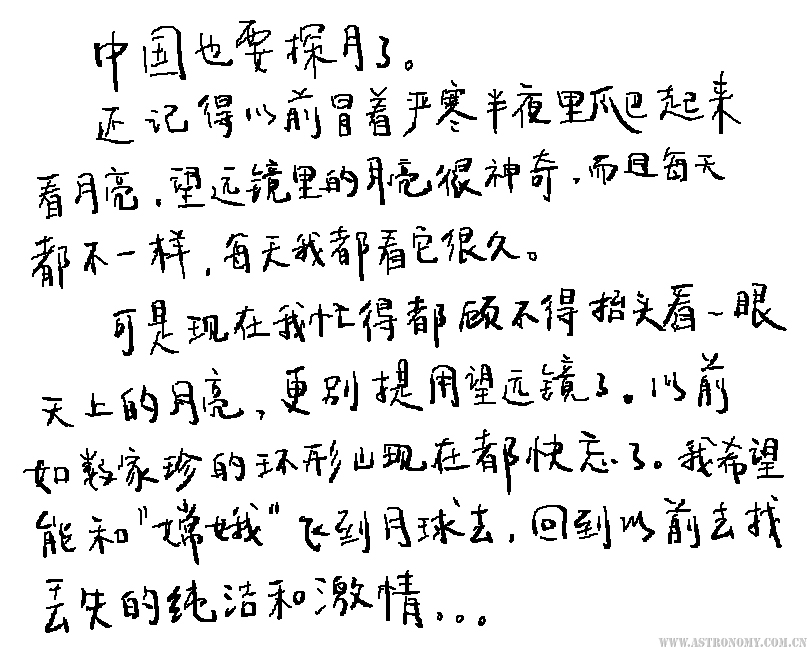 中国也要探月了。
还记得以前冒着严寒半夜里爬起来
看月亮，望远镜里的月亮很神奇，而且每天
都不一样，每天我都看它很久。
可是现在我忙得都顾不得抬头看一眼
天上的月亮，更别提用望远镜了。以前
如数家珍的环形山现在都快忘了。我希望
能和"嫦娥"飞到月球去，回到以前去找
丢失的纯洁和激情...
WWW.ASTRONOMY.COM.CN